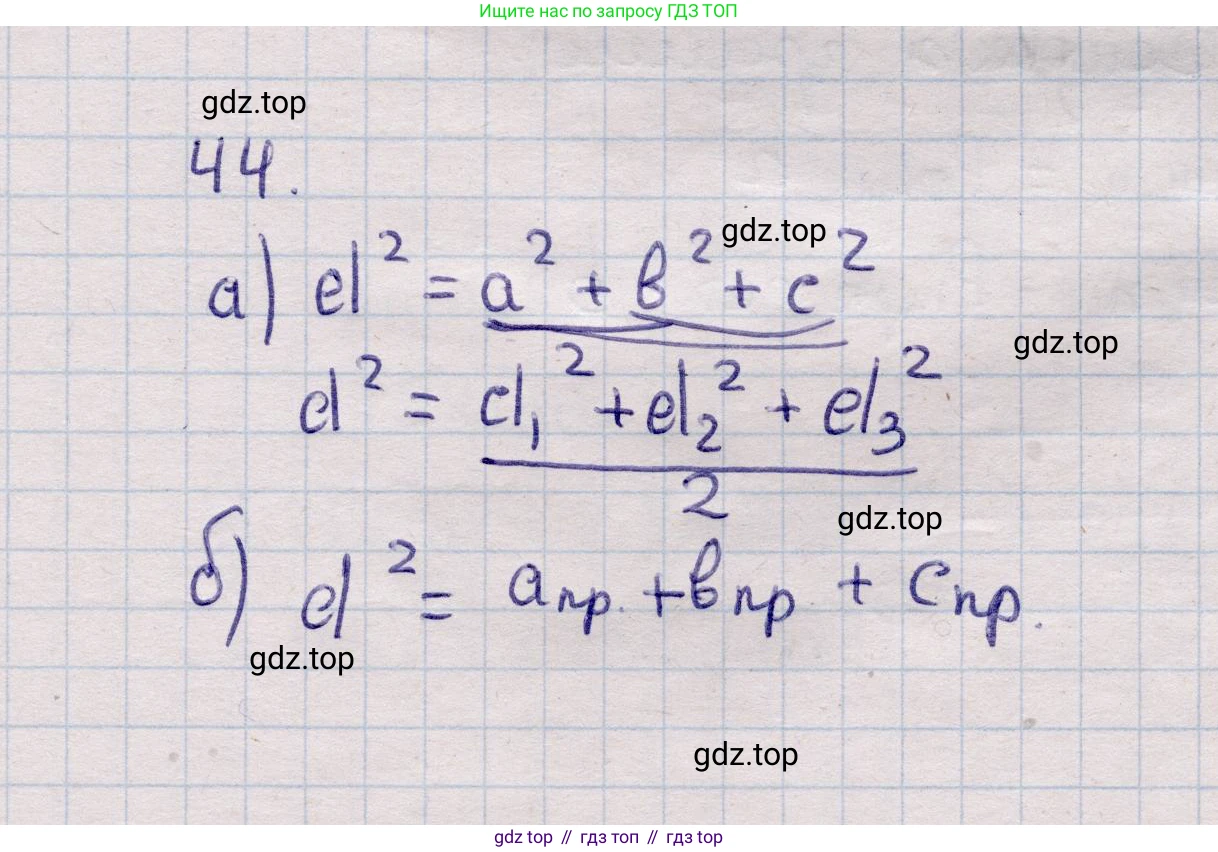 Ищите нас по запросу ГДЗ ТОП
gdz.top
44.
а) d² = a² + в² + c²
gdz.top
gdz.top
d² = (d₁² + d₂² + d₃²) / 2
gdz.top
б) d² = aпр. + впр + cпр.
gdz.top
gdz.top
gdz top // гдз топ // гдз top